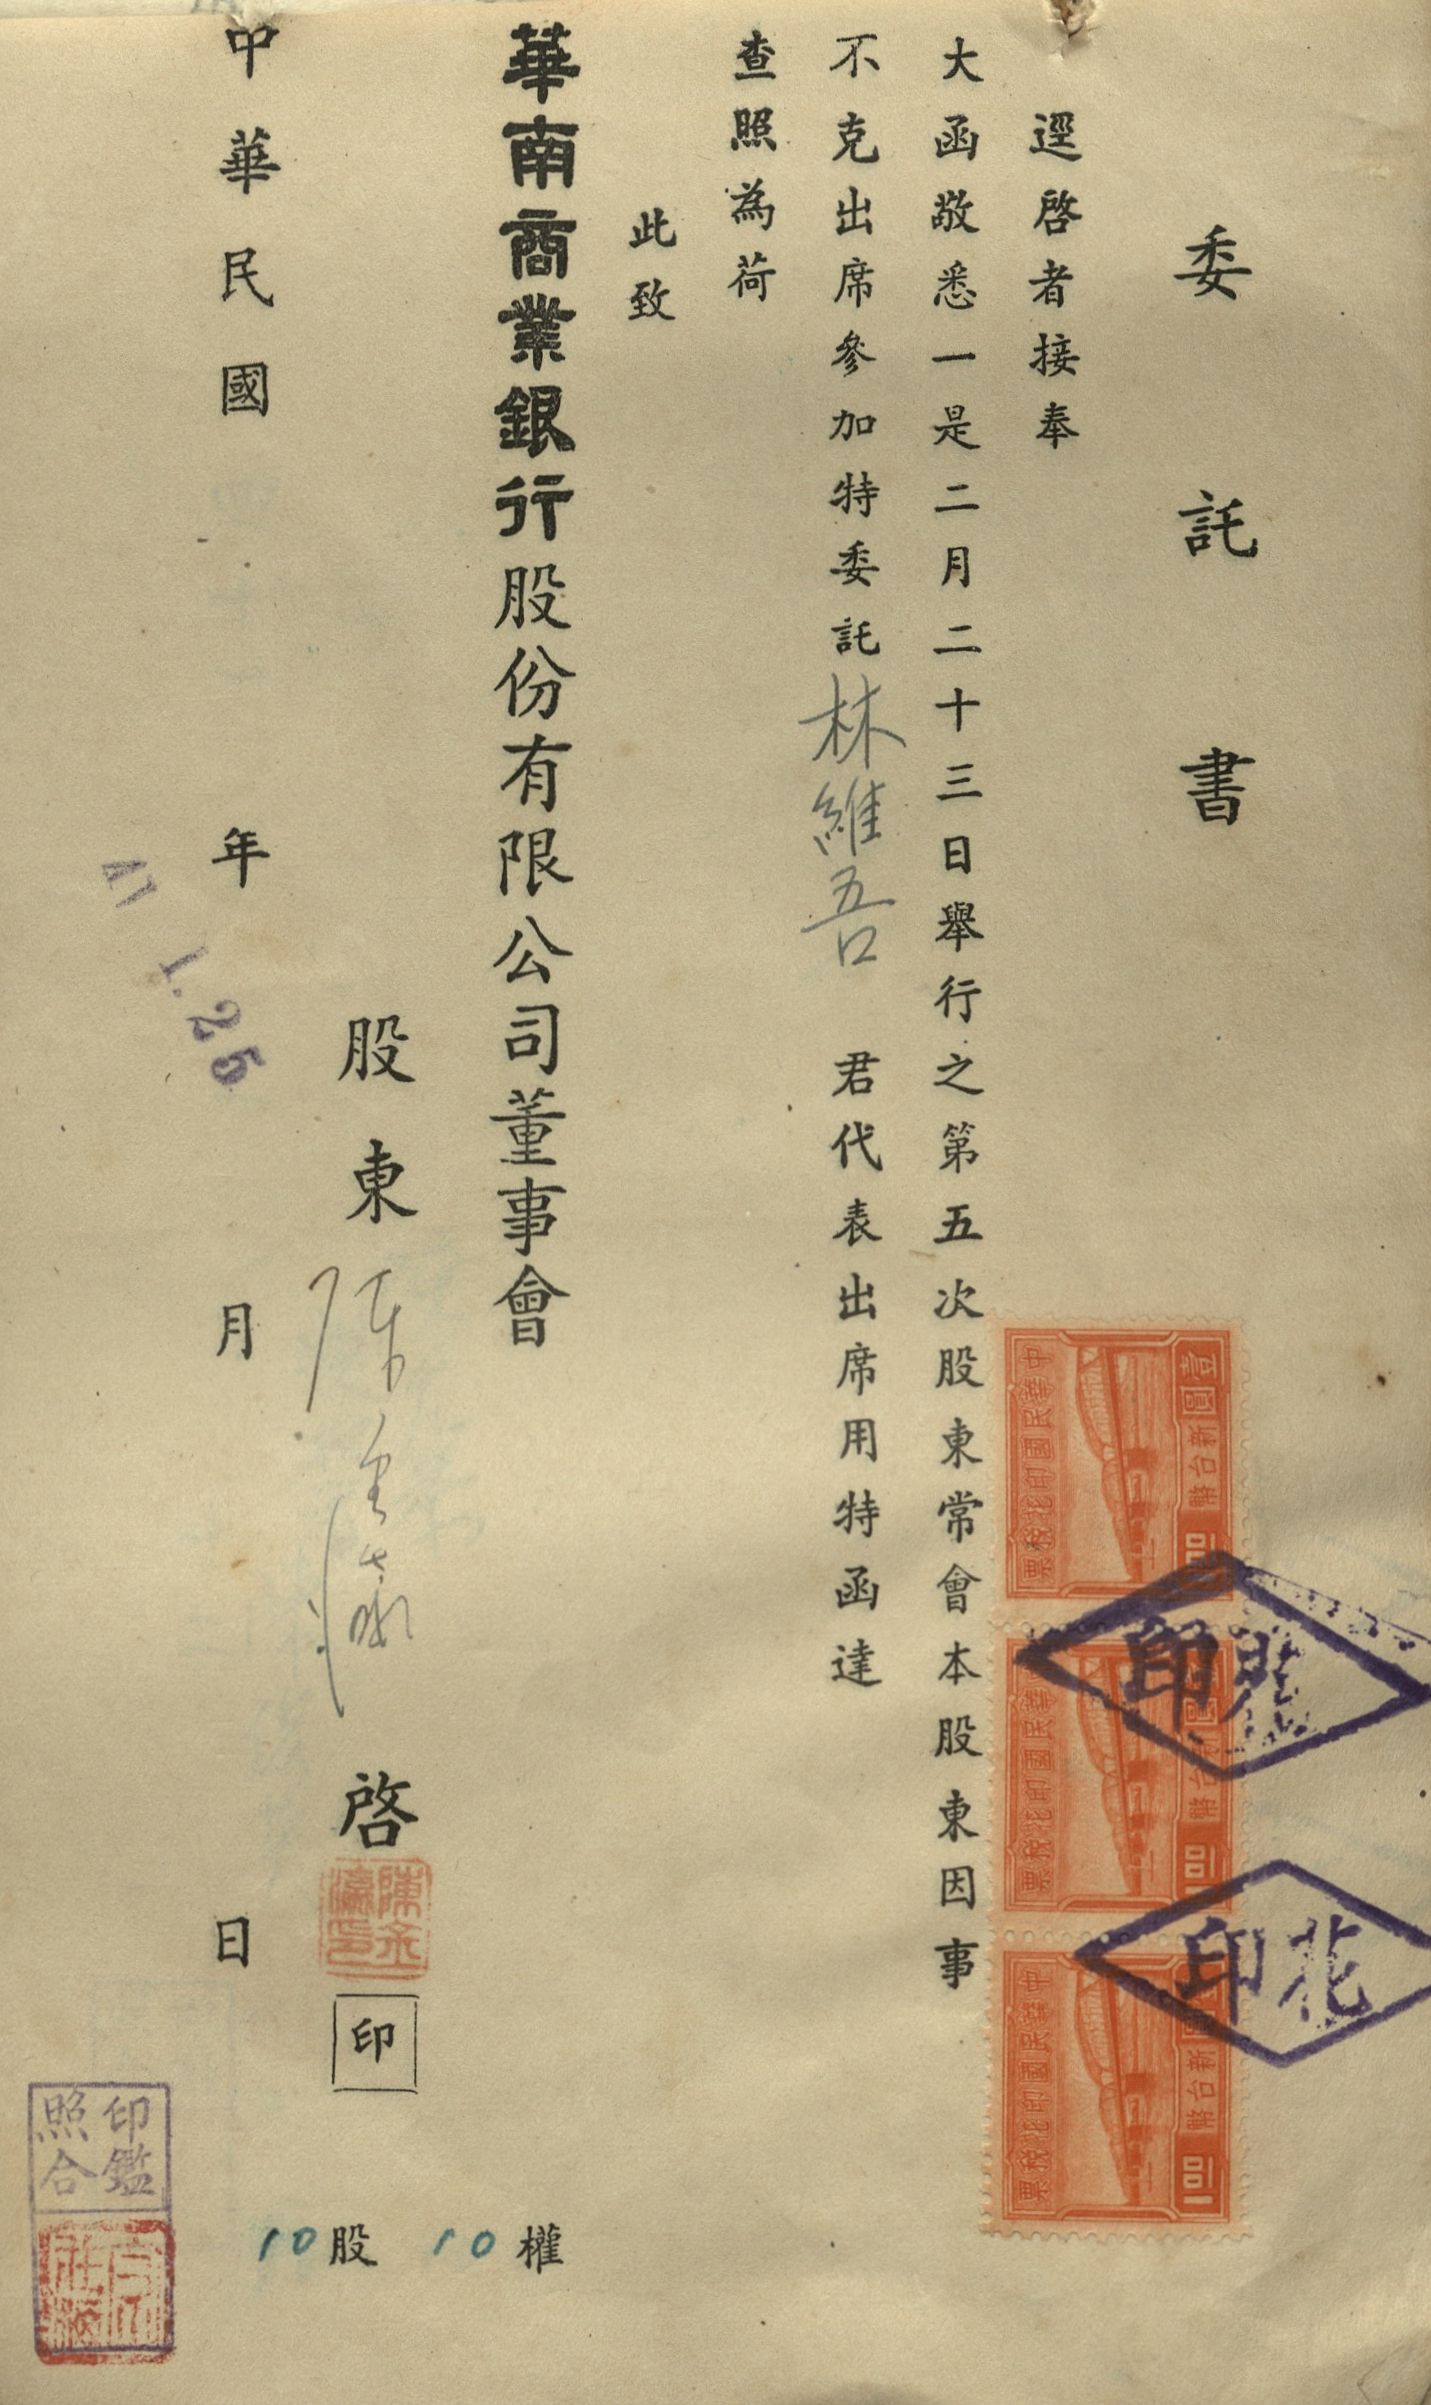 委託書
逕啓者接奉
大函敬悉一是二月二十三日舉行之第五次股東常會本股東因事
不克出席參加特委託林維吾 君代表出席用特函達
查照為荷
此致
華南商業銀行股份有限公司董事會
股東陳金 啓
印
中華民國 年 月 日
1.25
10股 10權
印鑑
照合
中華民國印花稅票
壹圓 新台幣
中華民國印花稅票
新台幣
中華民國印花稅票
新台幣
印花
印花